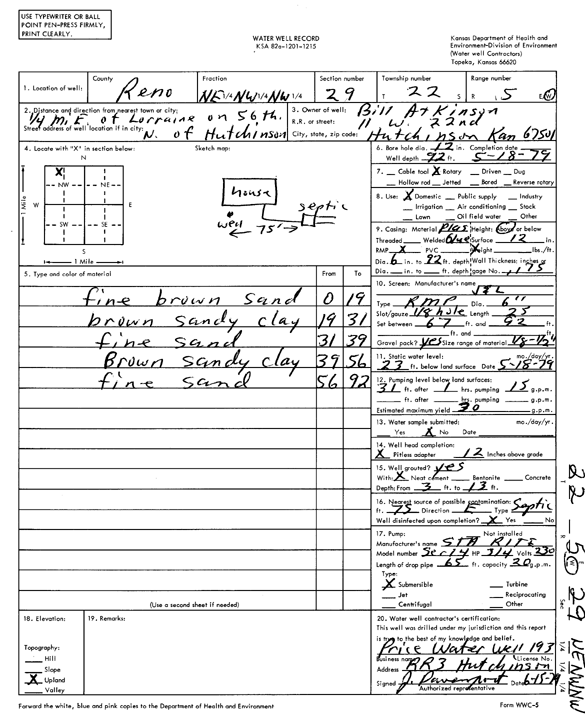 USE TYPEWRITER OR BALL
POINT PEN-PRESS FIRMLY,
PRINT CLEARLY.
WATER WELL RECORD
KSA 82a-1201-1215
Kansas Department of Health and
Environment-Division of Environment
(Water well Contractors)
Topeka, Kansas 66620
1. Location of well: County Reno Fraction NE 1/4 NW 1/4 NW 1/4 Section number 29 Township number T 22 S Range number R 5 E/W
2. Distance and direction from nearest town or city: 1/4 mi. E. of Lorraine on 56th.
Street address of well location if in city: N. of Hutchinson
3. Owner of well: Bill Atkinson
R.R. or street: 11 W. 22nd
City, state, zip code: Hutchinson Kan 67501
4. Locate with "X" in section below:
N
X
NW NE
W E
SW SE
S
1 Mile
1 Mile
Sketch map:
house
septic
well 75'
6. Bore hole dia. 12 in. Completion date
Well depth 92 ft. 5-18-79
7. Cable tool X Rotary Driven Dug
Hollow rod Jetted Bored Reverse rotary
8. Use: X Domestic Public supply Industry
Irrigation Air conditioning Stock
Lawn Oil field water Other
9. Casing: Material Plas Height: Above or below
Threaded Welded Glue Surface 12 in.
RMP X PVC Weight lbs./ft.
Dia. 6 in. to 92 ft. depth Wall Thickness: inches or
Dia. in. to ft. depth gage No. .175
5. Type and color of material From To
fine brown sand 0 19
brown sandy clay 19 31
fine sand 31 39
Brown sandy clay 39 56
fine sand 56 92
(Use a second sheet if needed)
10. Screen: Manufacturer's name
Type RMP Dia. 6"
Slot/gauze 1/8 hole Length 25
Set between 67 ft. and 92 ft.
ft. and ft.
Gravel pack? yes Size range of material 1/8-1/2"
11. Static water level: mo./day/yr.
23 ft. below land surface Date 5-18-79
12. Pumping level below land surfaces:
31 ft. after 1 hrs. pumping 15 g.p.m.
ft. after hrs. pumping g.p.m.
Estimated maximum yield 30 g.p.m.
13. Water sample submitted: mo./day/yr.
Yes X No Date
14. Well head completion:
X Pitless adapter 12 Inches above grade
15. Well grouted? yes
With: X Neat cement Bentonite Concrete
Depth: From 3 ft. to 13 ft.
16. Nearest source of possible contamination:
ft. 75 Direction E Type Septic
Well disinfected upon completion? X Yes No
17. Pump: Not installed
Manufacturer's name STA RITE
Model number HP 3/4 Volts 230
Length of drop pipe 65 ft. capacity 20 g.p.m.
Type:
X Submersible Turbine
Jet Reciprocating
Centrifugal Other
18. Elevation:
Topography:
Hill
Slope
X Upland
Valley
19. Remarks:
20. Water well contractor's certification:
This well was drilled under my jurisdiction and this report
is true to the best of my knowledge and belief.
Price Water Well 193
Business name License No.
Address RR3 Hutchinson
Signed J. Davenport Date 6-15-79
Authorized representative
Forward the white, blue and pink copies to the Department of Health and Environment
Form WWC-5
T 22 R 5 W Sec 29 NE NW NW
1/4 1/4 1/4